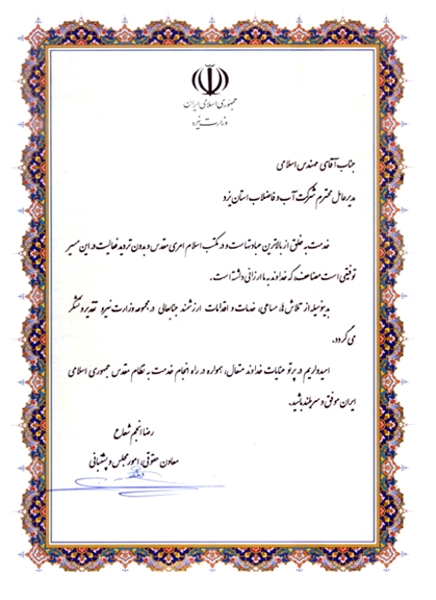 جمهوری اسلامی ایران
وزارت نیرو
جناب آقای مهندس اسلامی
مدیرعامل محترم شرکت آب و فاضلاب استان یزد
خدمت به خلق از بالاترین عبادتهاست و در مکتب اسلام امری مقدس و بدون تردید فعالیت در این مسیر
توفیقی است مضاعف که خداوند به ما ارزانی داشته است.
بدینوسیله از تلاش‌ها، مساعی، خدمات و اقدامات ارزشمند جنابعالی در مجموعه وزارت نیرو تقدیر و تشکر
می گردد.
امیدواریم در پرتو عنایات خداوند متعال، همواره در راه انجام خدمت به نظام مقدس جمهوری اسلامی
ایران موفق و سربلند باشید.
رضا انجم شعاع
معاون حقوقی، امور مجلس و پشتیبانی